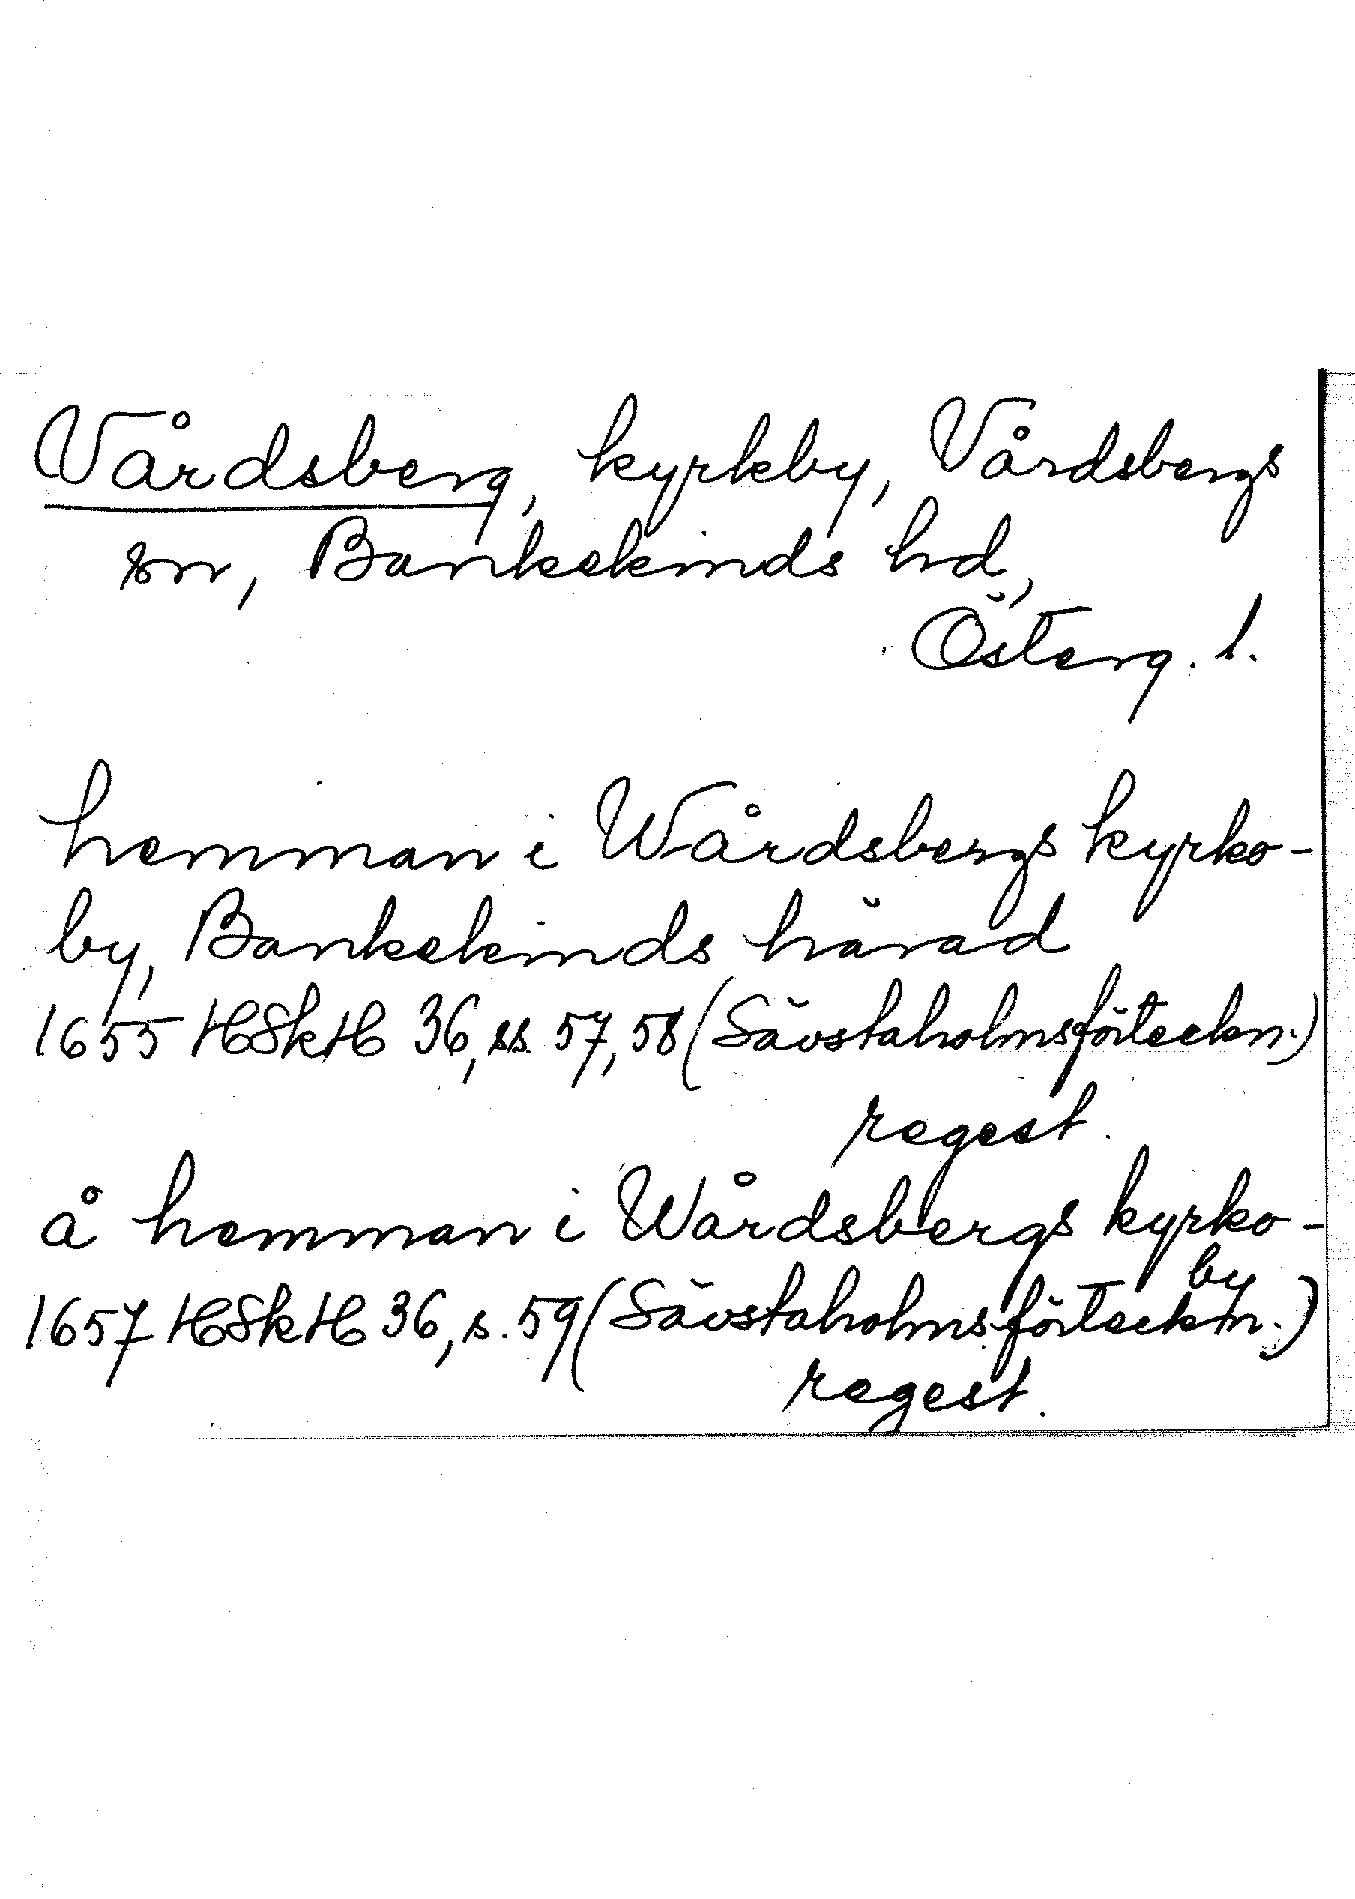 Vårdsberg, kyrkby, Vårdsbergs
sn, Bankekinds hd,
Österg. l.
hemman i Wårdsbergs kyrko-
by, Bankekinds härad
1655 HSkH 36, ss. 57, 58 (Sävstaholmsförteckn.)
regest.
å hemman i Wårdsbergs kyrko-
by
1657 HSkH 36, s. 59 (Sävstaholmsförteckn.)
regest.